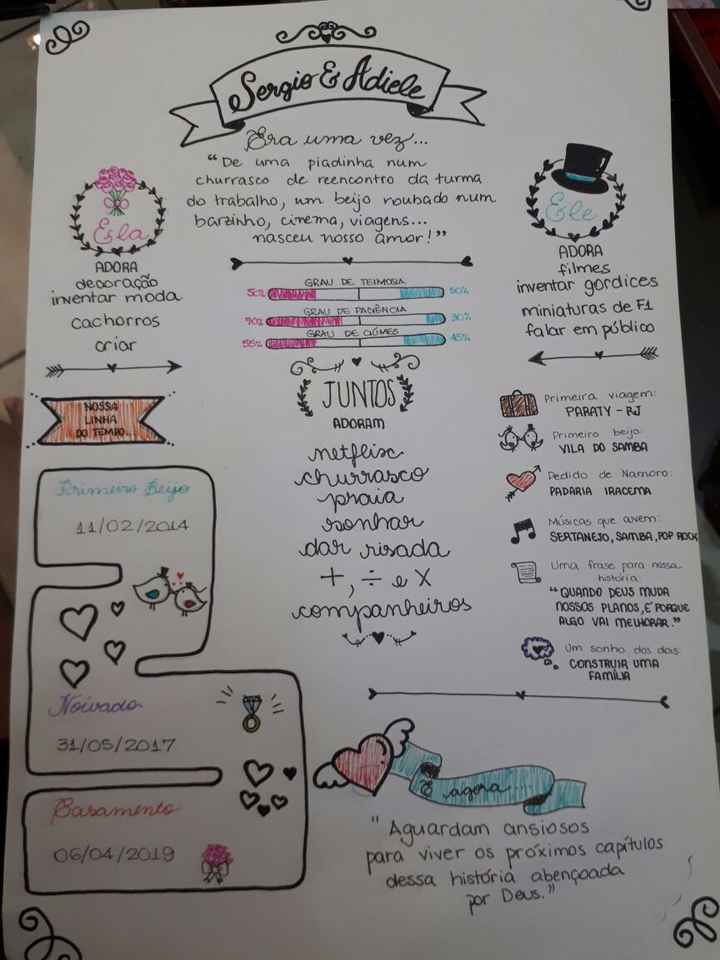 Sergio & Adiele
Era uma vez...
“De uma piadinha num
churrasco de reencontro da turma
do trabalho, um beijo roubado num
barzinho, cinema, viagens...
nasceu nosso amor!”
Ela
ADORA
decoração
inventar moda
cachorros
criar
Ele
ADORA
filmes
inventar gordices
miniaturas de F1
falar em público
GRAU DE TEIMOSIA
50% 50%
GRAU DE PACIÊNCIA
70% 30%
GRAU DE CIÚMES
55% 45%
JUNTOS
ADORAM
netflix
churrasco
praia
sonhar
dar risada
+, ÷ e x
companheiros
NOSSA
LINHA
DO TEMPO...
Primeiro Beijo
11/02/2014
Noivado
31/05/2017
Casamento
06/04/2019
Primeira viagem:
PARATY - RJ
Primeiro beijo:
VILA DO SAMBA
Pedido de Namoro:
PADARIA IRACEMA
Músicas que ouvem:
SERTANEJO, SAMBA, POP ROCK
Uma frase para nossa
história:
“QUANDO DEUS MUDA
NOSSOS PLANOS, É PORQUE
ALGO VAI MELHORAR.”
Um sonho dos dois:
CONSTRUIR UMA
FAMÍLIA
E agora...
"Aguardam ansiosos
para viver os próximos capítulos
dessa história abençoada
por Deus."